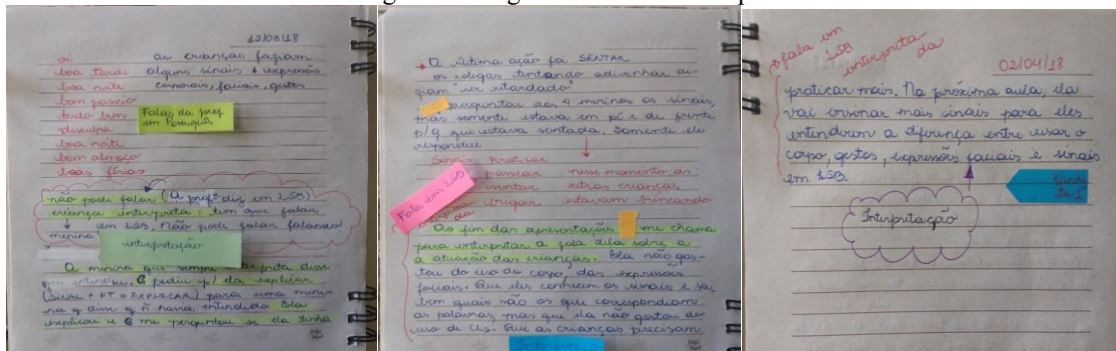 12/03/18
oi
boa tarde
boa noite
bom passeio
tudo bem
desculpa
boa noite
bom almoço
boas férias
as crianças faziam
alguns sinais + expressões
corporais, faciais, gestos
Falas da prof
em Português
não pode falar (A profª diz em LSB)
criança interpreta: tem que falar
em LSB. Não pode falar falando
menina
interpretação
A menina que sempre interpreta disse
que entendeu. C pediu p/ ela explicar
(SINAL + PT = EXPLICAR) para uma meni-
na q disse q ñ havia entendido. Ela
explicou e C me perguntou se ela tinha
A última ação foi SENTAR
os colegas tentando adivinhar di-
ziam "ser retardado"
perguntou aos 4 meninos os sinais,
mas somente estava em pé e de frente
p/ q estava sentada. Somente ele
respondeu
Sinais praticar
passear
sentar
brigar
nesse momento as
outras crianças
estavam brincando
Fala em LSB
interpreta
da
Ao fim das apresentações me chama
para interpretar a fala dela sobre a
a atuação das crianças. Ela não gos-
tou do uso do corpo, das expressões
faciais. Que eles conhecem os sinais e sa-
bem quais são os que correspondem
as palavras, mas que ela não gostou do
uso de CLs. Que as crianças precisam
Interpretação
fala em
LSB
interpreta-
da
02/04/18
praticar mais. Na próxima aula, ela
vai ensinar mais sinais para eles
entenderem a diferença entre usar o
corpo, gestos, expressões faciais e sinais
em LSB.
Interpretação